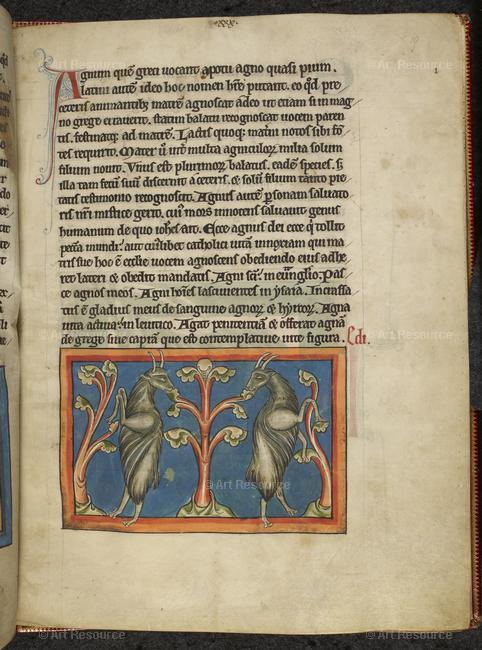 .xxx.
Agnum quē greci uocant apo tu agno quasi pium.
latini autē ideo hoc nomen habe putant. eo qd pre
ceteris animantibꝫ matrē agnoscat adeo ut etiam si in mag
no grege erauerit. statim balatu recognoscat uocem paren
tis. festinatqꝫ ad matrē. Lactis quoqꝫ matn̄i notos sibi fō
tes requirit. Mater ū int multa agniculoꝝ milia solum
filium nouit. Vnus est plurimoꝝ balatus. eadē species. sꝫ
illa tam fetū suū discernit a ceteris. et solū filium tanto pie
tatis testimonio recognoscit. Agnus autē psonam saluato
ris nr̄i mistice gerit. cui mors innocens saluauit genus
humanum de quo ioħes ait. Ecce agnus dei ecce q tollit
pccā mundi. aut cuilibet catholici uitā innoxiam qui ma
tri sue hoc ē ecclie uocem agnoscens obediendo eius adhe
ret lateri et obedit mandatis. Agni sc̄i. in euḡlio. Pas
ce agnos meos. Agni hoīes lasciuientes in ysaia. Incrassa
tus ē gladius meus de sanguine agnoꝝ et hyrcoꝝ. Agna
uita actiua. in leuitico. Agat penitentiā et offerat agnā
de grege siue caprā que est contemplatiue uite figura.
1
© Art Resource
© Art Resource
© Art Resource
© Art Resource
© Art Resource